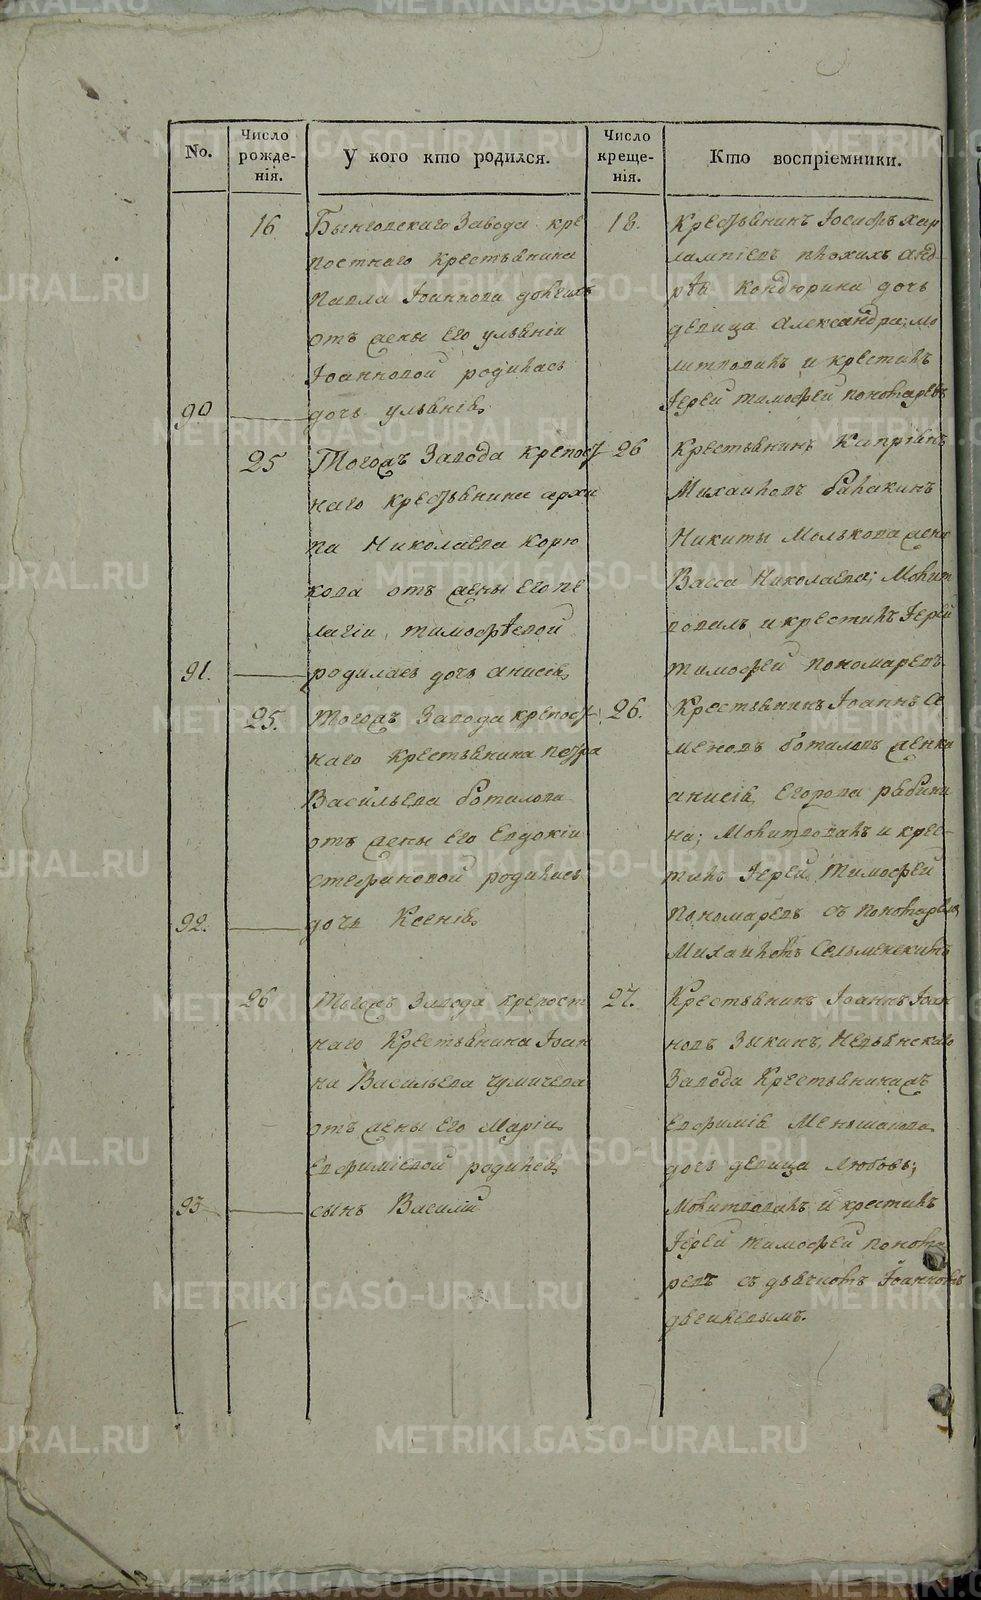 No.
Число рожде-нія.
У кого кто родился.
Число креще-нія.
Кто воспріемники.
16
Бынговскаго Завода кре
постнаго крестьянина
Павла Іоаннова
отъ жены его Ульяніи
Іоанновой родилась
90
дочь Ульянія
18.
Крестьянинъ Іосифъ Хар
лампіевъ
Кондюрина дочь
девица Александра; мо
литвовалъ и крестилъ
Іерей Тимофей Пономаревъ
25
Тогожъ Завода крепост
наго крестьянина Архи
па Николаева Корю
кова отъ жены его Пе
лагіи Тимофѣевой
91.
родилась дочь Анисія
26
Крестьянинъ Капріянъ
Михаиловъ Балакинъ
Никиты Молькова жена
Васса Николаева; Молит
вовалъ и крестилъ Іерей
Тимофей Пономаревъ
25.
Тогожъ Завода крепост
наго крестьянина Петра
Васильева Боталова
отъ жены его Евдокіи
Стефановой родилась
92.
дочь Ксенія
26.
Крестьянинъ Іоаннъ Се
меновъ Боталовъ женка
Анисія Егорова Рябини
на; Молитвовалъ и крес-
тилъ Іерей Тимофей
Пономаревъ съ пономаремъ
Михаиломъ
26
Тогожъ Завода крепост
наго Крестьянина Іоан
на Васильева Чумичева
отъ жены его Маріи
Евфиміевой родился
93
сынъ Василій
27.
Крестьянинъ Іоаннъ Іоан
новъ Зыкинъ, Невьянскаго
Завода Крестьянина
Евфимія Меньшакова
дочь девица Любовь;
Молитвовалъ и крестилъ
Іерей Тимофей Понома
ревъ съ дьячкомъ Іоанномъ
METRIKI.GASO-URAL.RU